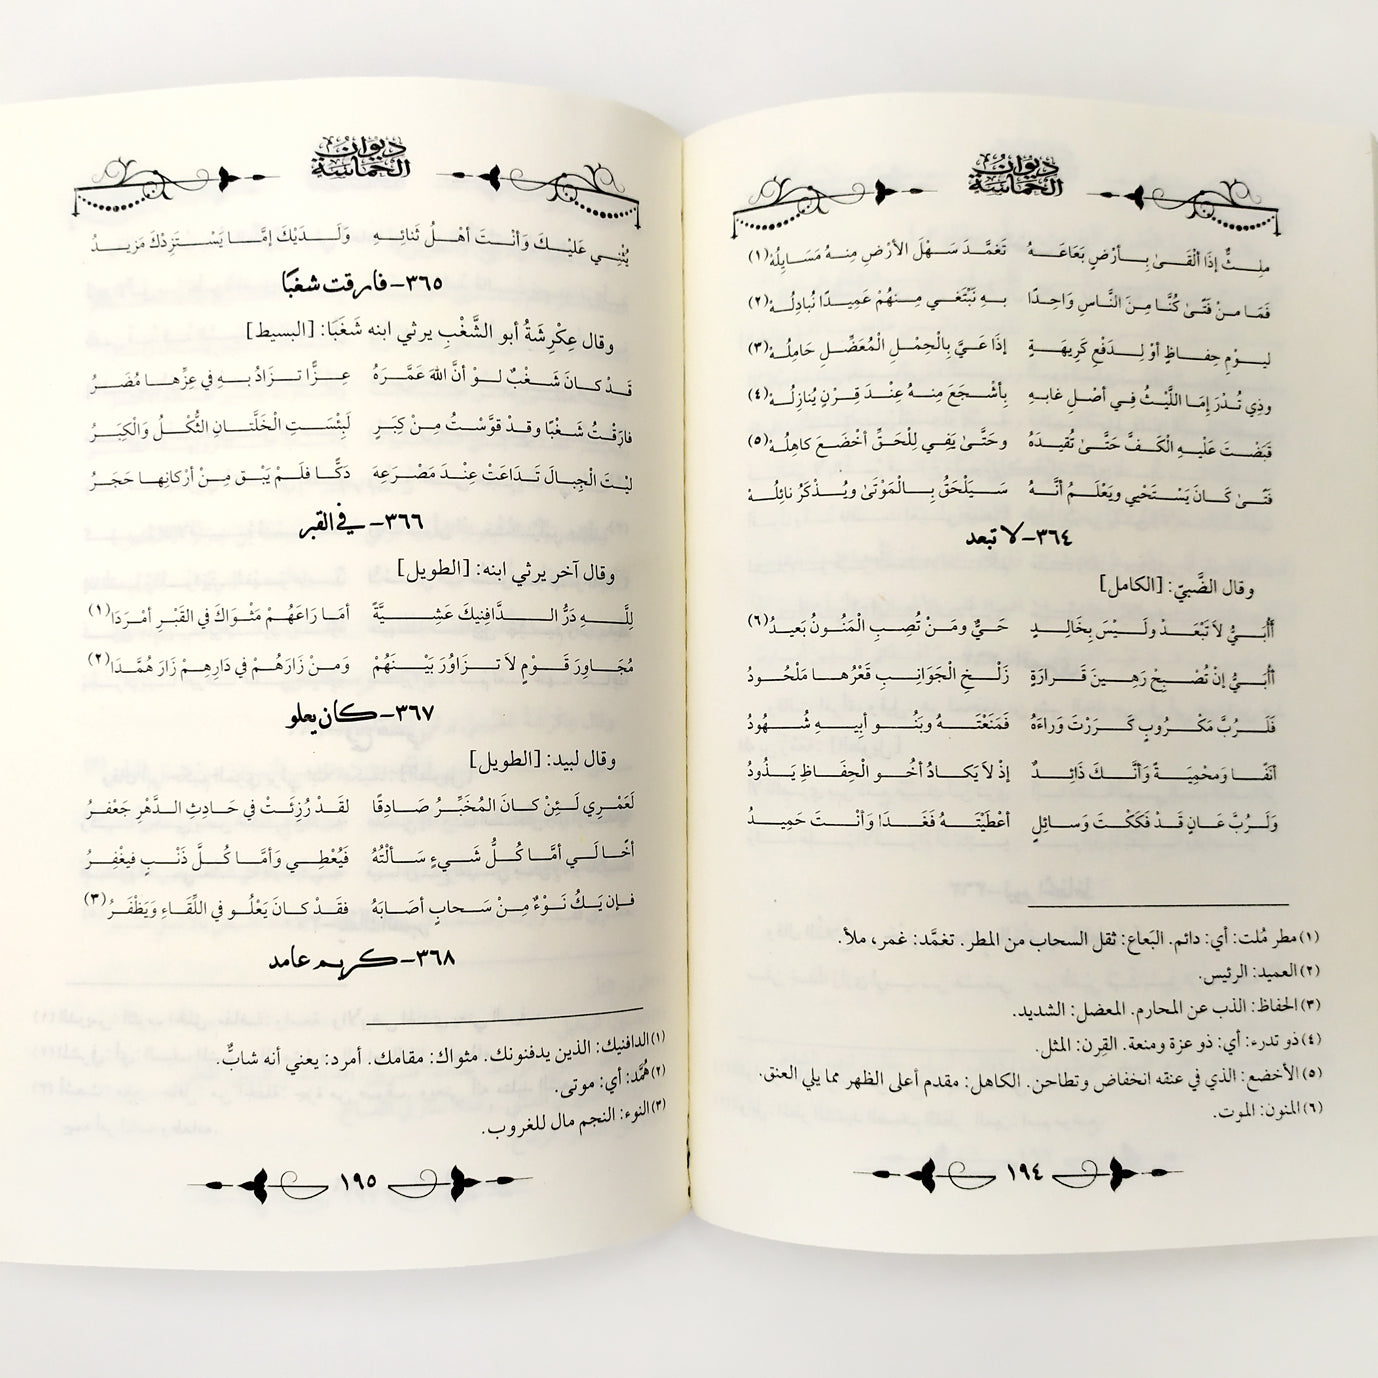 ديوان الحماسة
ملِثٌّ إذَا ألْقَىٰ بِأرْضٍ بَعَاعَهُ تَغَمَّدَ سَهْلَ الأرْضِ مِنهُ مَسَايِلُهْ(١)
فَمَا منْ فَتًىٰ كُنَّا مِنَ النَّاسِ وَاحِدًا بهِ نَبْتَغي مِنهُمْ عَمِيدًا نُبادِلُهْ(٢)
ليوْمِ حِفاظٍ أوْ لِدَفْعِ كَرِيهَةٍ إذَا عَيَّ بِالْحِمْلِ الْمُعَضِّلِ حَامِلُهْ(٣)
وذِي تُدْرَإِمَا اللَّيْثُ فِي أصْلِ غابهِ بِأشْجَعَ مِنهُ عِنْدَ قِرْنٍ يُنازِلُهْ(٤)
قَبَضْتَ عَلَيْهِ الْكَفَّ حَتَّىٰ تُقيدَهُ وحَتَّىٰ يَفِي لِلْحَقِّ أخْضَعَ كاهِلُهْ(٥)
فَتًىٰ كَانَ يَسْتَحْيِي ويَعْلَمُ أنَّهُ سَيَلْحَقُ بِالْمَوْتَىٰ ويُذْكَرُ نائِلُهْ
٣٦٤-لا تبعد
وقال الضَّبيّ: [الكامل]
أَأُبَيُّ لاَ تَبْعَدْ ولَيْسَ بِخَالِدٍ حَيٌّ ومَنْ تُصِبِ الْمَنُونُ بَعيدُ(٦)
أَأُبَيُّ إنْ تُصْبِحْ رَهِينَ قَرَارَةٍ زَلْخِ الْجَوَانِبِ قَعْرُها مَلْحُودُ
فَلَرُبَّ مَكْرُوبٍ كَرَرْتَ وَراءَهُ فَمَنَعْتَهُ وبَنُو أبِيهِ شُهُودُ
أنَفًا وَمحْمِيَةً وَأنَّكَ ذَائِدٌ إذْ لاَ يَكادُ أخُو الْحِفَاظِ يَذُودُ
وَلَرُبَّ عَانٍ قَدْ فَكَكْتَ وَسائِلٍ أعْطَيْتَهُ فَغَدَا وَأنْتَ حَمِيدُ
(١) مطر مُلث: أي: دائم. البَعاع: ثقل السحاب من المطر. تغمَّد: غمر، ملأ.
(٢) العميد: الرئيس.
(٣) الحفاظ: الذب عن المحارم. المعضل: الشديد.
(٤) ذو تدرء: أي: ذو عزة ومنعة. القِرن: المثل.
(٥) الأخضع: الذي في عنقه انخفاض وتطاحن. الكاهل: مقدم أعلى الظهر مما يلي العنق.
(٦) المنون: الموت.
١٩٤
ديوان الحماسة
يُثْنِي عَليْكَ وَأنْتَ أهْلُ ثَنائِهِ وَلَدَيْكَ إمَّا يَسْتَزِدْكَ مَزِيدُ
٣٦٥-فارقت شغبًا
وقال عِكْرِشَةُ أبو الشَّغْبِ يرثي ابنه شَغَبًا: [البسيط]
قَدْ كانَ شَغْبٌ لوْ أنَّ اللهَ عَمَّرَهُ عِزًّا تزَادُ بهِ في عِزِّها مُضَرُ
فارَقْتُ شَغْبًا وقدْ قوَّسْتُ مِنْ كِبَرٍ لَبِئْسَتِ الْخَلَّتانِ الثُّكْلُ وَالْكِبَرُ
ليْتَ الْجِبالَ تَدَاعَتْ عِنْدَ مَصْرَعِهِ دَكًّا فلَمْ يَبْق مِنْ أرْكانِها حَجَرُ
٣٦٦-في القبر
وقال آخر يرثي ابنه: [الطويل]
لِلَّهِ دَرُّ الدَّافِنِيكَ عَشِيَّةً أمَا رَاعَهُمْ مَثْوَاكَ في القَبْرِ أمْرَدَا(١)
مُجَاوِرَ قَوْمٍ لاَ تزَاوُرَ بَيْنَهُمْ وَمنْ زَارَهُمْ في دَارِهِمْ زَارَ هُمَّدَا(٢)
٣٦٧-كان يعلو
وقال لبيد: [الطويل]
لَعَمْرِي لَئِنْ كانَ المُخَبِّرُ صَادِقًا لقَدْ رُزِئَتْ في حَادِثِ الدَّهْرِ جَعْفرُ
أخًا لَي أمَّا كُلُّ شَيءٍ سَألْتُهُ فَيُعْطِي وَأمَّا كُلَّ ذَنْبٍ فيغْفِرُ
فإن يَكُ نَوْءٌ مِنْ سَحابٍ أصَابَهُ فقَدْ كانَ يَعْلُو في اللِّقَاءِ وَيَظْفَرُ(٣)
٣٦٨-كريم عامد
(١) الدافنيك: الذين يدفنونك. مثواك: مقامك. أمرد: يعني أنه شابٌّ.
(٢) هُمَّد: أي: موتى.
(٣) النوء: النجم مال للغروب.
١٩٥